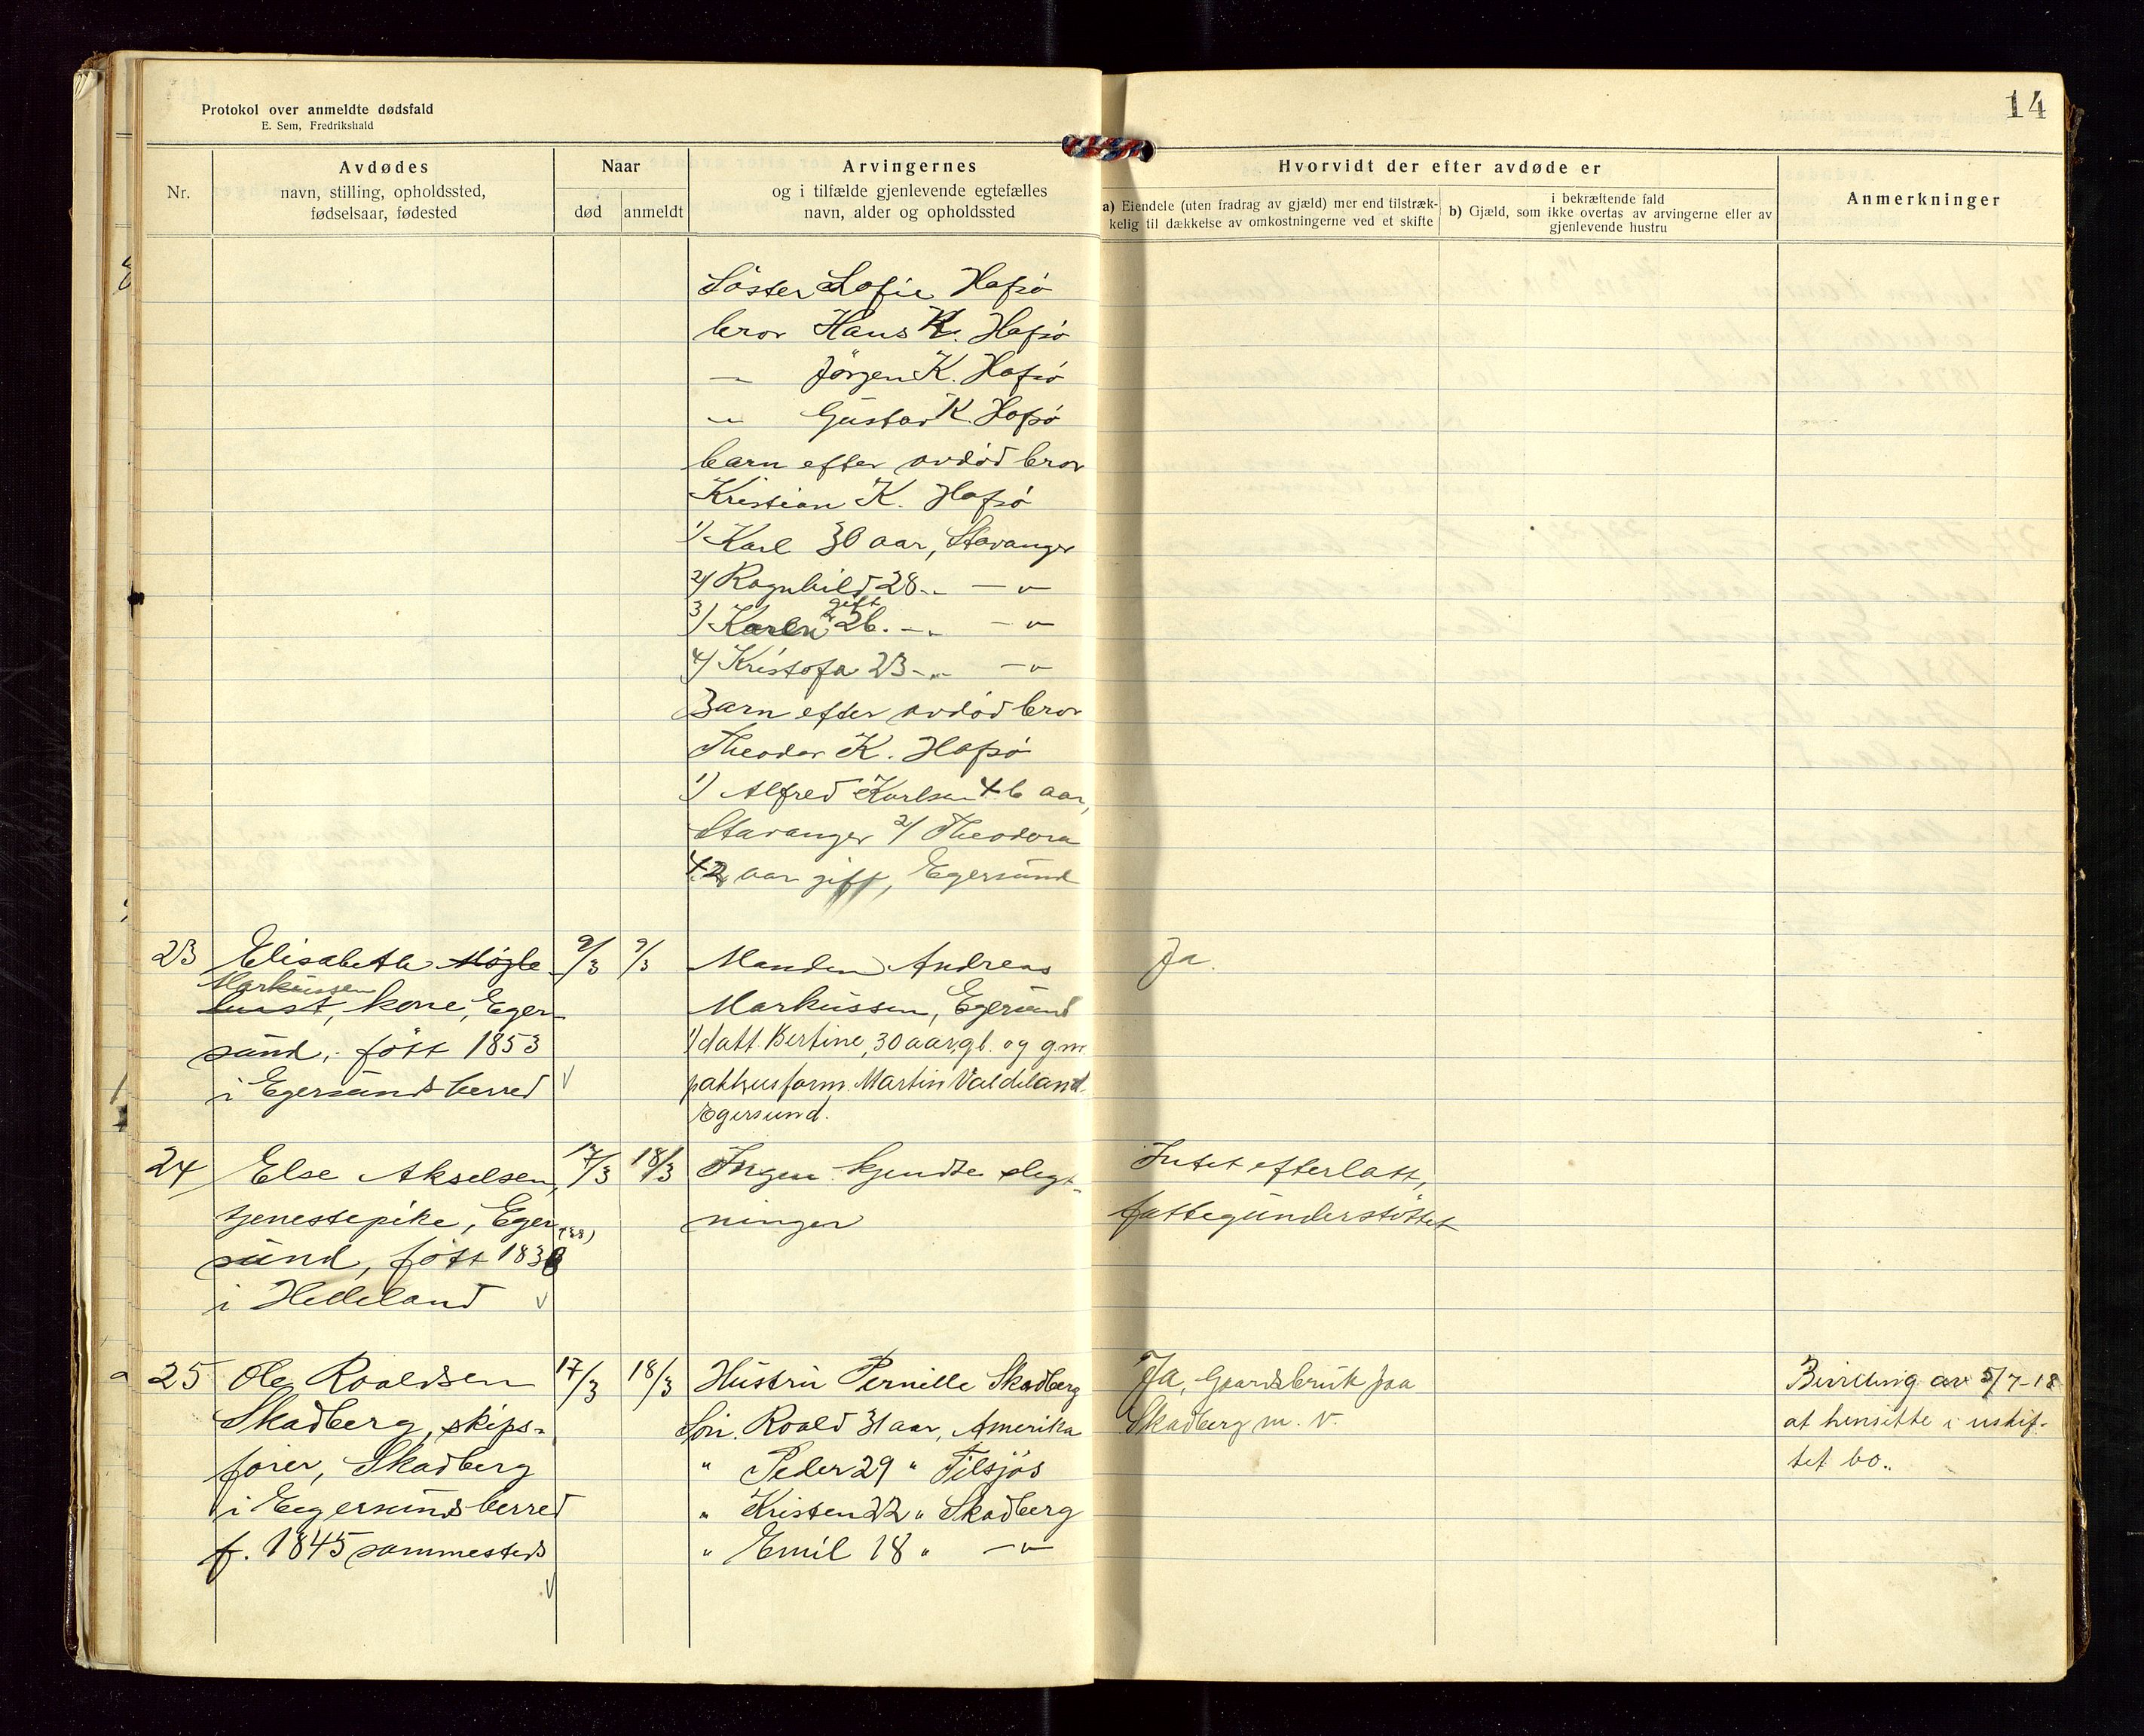 Protokol over anmeldte dødsfald
E. Sem, Fredrikshald
14
Nr.
Avdødes
navn, stilling, opholdssted,
fødselsaar, fødested
Naar
død
anmeldt
Arvingernes
og i tilfælde gjenlevende egtefælles
navn, alder og opholdssted
Hvorvidt der efter avdøde er
a) Eiendele (uten fradrag av gjæld) mer end tilstræk-
kelig til dækkelse av omkostningerne ved et skifte
i bekræftende fald
b) Gjæld, som ikke overtas av arvingerne eller av
gjenlevende hustru
Anmerkninger
Søster Lofie Hafsø
bror Hans K. Hafsø
—„— Jørgen K. Hafsø
—„— Gustav K. Hafsø
barn efter avdød bror
Kristian K. Hafsø
1) Karl 30 aar, Stavanger
2) Ragnhild 28 -„- —„—
gift
3) Karen 26. -„- —„—
4) Kristofa 23 -„- —„—
Barn efter avdød bror
Theodor K. Hafsø
1) Alfred Karlsen 46 aar,
Stavanger 2) Theodora
42 aar gift, Egersund
23 Elisabeth Høgle- 9/3 9/3
Markussen
hust, kone, Eger-
sund, født 1853
i Egersunds herred
Manden Andreas
Markussen, Egersund
1) datt. Bertine, 30 aar, gl. og g.m.
pakhusform. Martin Valdeland
Egersund.
Ja.
24 Else Akselsen, 17/3 18/3
tjenestepike, Eger-
(38)
sund, født 1838
i Helleland
Ingen kjendte slegt-
ninger
Intet efterlatt,
fattigunderstøttet
25 Ole Roaldsen 17/3 18/3
Skadberg, skips-
fører, Skadberg
i Egersunds herred
f. 1845 sammesteds
Hustru Pernille Skadberg
Søn. Roald 31 aar, Amerika
" Peder 29 " Tilsjøs
" Kristen 22 " Skadberg
" Emil 18 " —„—
Ja, Gaardsbruk paa
Skadberg m. v.
Bevilling av 5/7-18
at hensitte i uskif-
tet bo.